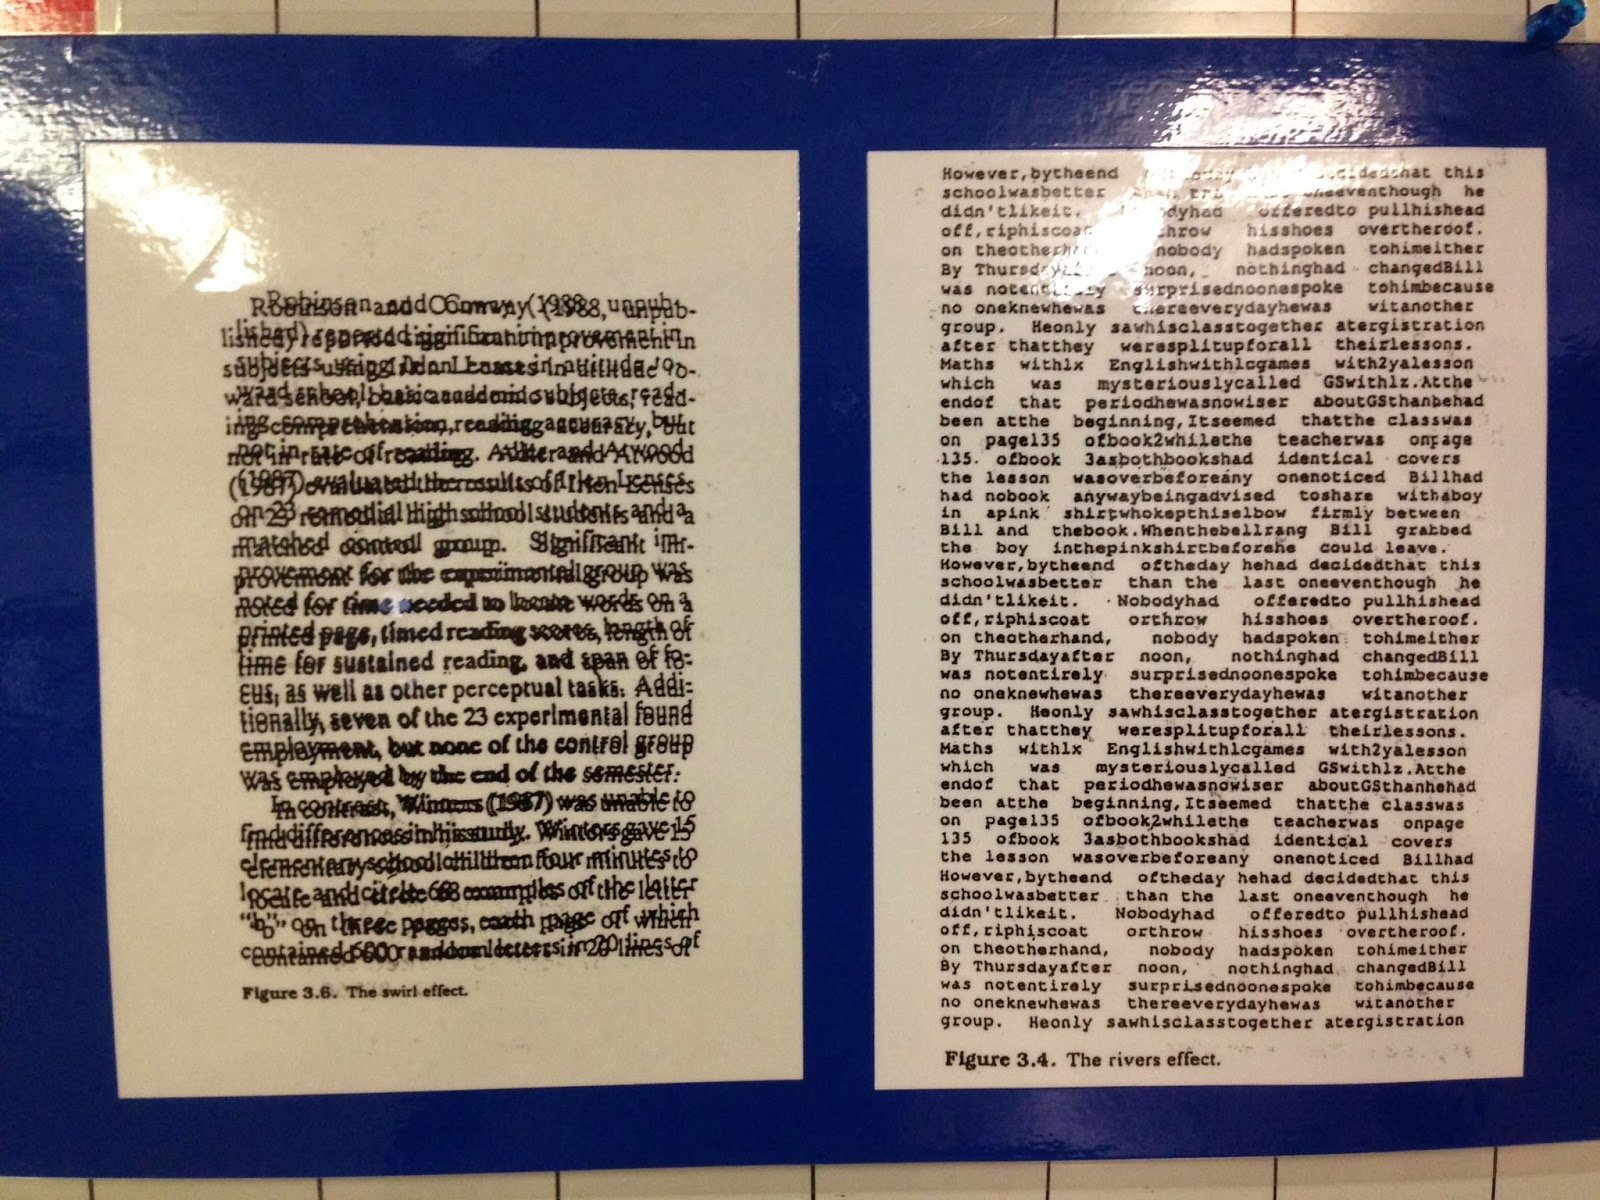 Robinson and Conway (1988, unpub-
lished) reported significant improvement in
subjects using Irlen Lenses in attitude to-
ward school, basic academic subjects, read-
ing comprehension, reading accuracy, but
not in rate of reading. Adler and Atwood
(1987) evaluated the results of Irlen Lenses
on 23 remedial high school students and a
matched control group. Significant im-
provement for the experimental group was
noted for time needed to locate words on a
printed page, timed reading scores, length of
time for sustained reading, and span of fo-
cus, as well as other perceptual tasks. Addi-
tionally, seven of the 23 experimental found
employment, but none of the control group
was employed by the end of the semester.
In contrast, Winters (1987) was unable to
find differences in his study. Winters gave 15
elementary school children four minutes to
locate and circle 68 examples of the letter
"b" on three pages, each page of which
contained 600 random letters in 20 lines of
Figure 3.6. The swirl effect.
However,bytheend decidedthat this
schoolwasbetter oneeventhough he
didn'tlikeit. offeredto pullhishead
off,riphiscoat throw hisshoes overtheroof.
on theotherhand nobody hadspoken tohimeither
By noon, nothinghad changedBill
was notentirely surprisednoonespoke tohimbecause
no oneknewhewas thereeverydayhewas witanother
group. Heonly sawhisclasstogether atergistration
after thatthey weresplitupforall theirlessons.
Maths withlx Englishwithlcgames with2yalesson
which was mysteriouslycalled GSwithlz.Atthe
endof that periodhewasnowiser aboutGSthanhehad
been atthe beginning,Itseemed thatthe classwas
on page135 ofbook2whilethe teacherwas onpage
135. ofbook 3asbothbookshad identical covers
the lesson wasoverbeforeany onenoticed Billhad
had nobook anywaybeingadvised toshare withaboy
in apink shirtwhokepthiselbow firmly between
Bill and thebook.Whenthebellrang Bill grabbed
the boy inthepinkshirtbeforehe could leave.
However,bytheend oftheday hehad decidedthat this
schoolwasbetter than the last oneeventhough he
didn'tlikeit. Nobodyhad offeredto pullhishead
off,riphiscoat orthrow hisshoes overtheroof.
on theotherhand, nobody hadspoken tohimeither
By Thursdayafter noon, nothinghad changedBill
was notentirely surprisednoonespoke tohimbecause
no oneknewhewas thereeverydayhewas witanother
group. Heonly sawhisclasstogether atergistration
after thatthey weresplitupforall theirlessons.
Maths withlx Englishwithlcgames with2yalesson
which was mysteriouslycalled GSwithlz.Atthe
endof that periodhewasnowiser aboutGSthanhehad
been atthe beginning,Itseemed thatthe classwas
on page135 ofbook2whilethe teacherwas onpage
135 ofbook 3asbothbookshad identical covers
the lesson wasoverbeforeany onenoticed Billhad
However,bytheend oftheday hehad decidedthat this
schoolwasbetter than the last oneeventhough he
didn'tlikeit. Nobodyhad offeredto pullhishead
off,riphiscoat orthrow hisshoes overtheroof.
on theotherhand, nobody hadspoken tohimeither
By Thursdayafter noon, nothinghad changedBill
was notentirely surprisednoonespoke tohimbecause
no oneknewhewas thereeverydayhewas witanother
group. Heonly sawhisclasstogether atergistration
Figure 3.4. The rivers effect.